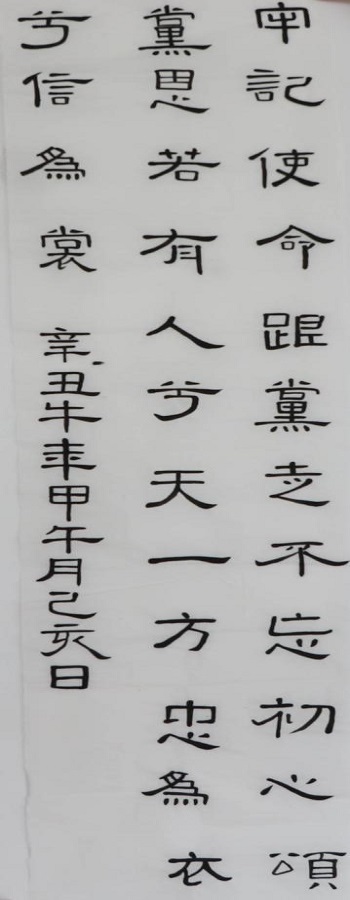 牢記使命跟黨走不忘初心頌
黨恩若有人兮天一方忠為衣
兮信為裳 辛丑牛年甲午月己亥日